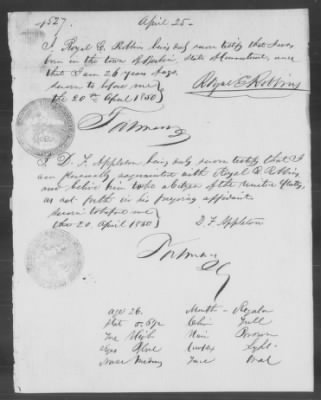 1527.
April 25-
I, Royal E. Robbins being duly sworn testify that I was
born in the town of Berlin, State of Connecticut, and
that I am 26 years of age.
Sworn to before me
the 20th April 1850
Royal E Robbins
I, D. F. Appleton being duly sworn testify that I
am personally acquainted with Royal E. Robbins
and believe him to be a Citizen of the United States,
as set forth in his foregoing affidavit.
Sworn to before me
the 20 April 1850
D. F. Appleton
age 26. Mouth - Regular
Chin Full
High Hair Brown
Eyes Blue Light
Nose Face Oval